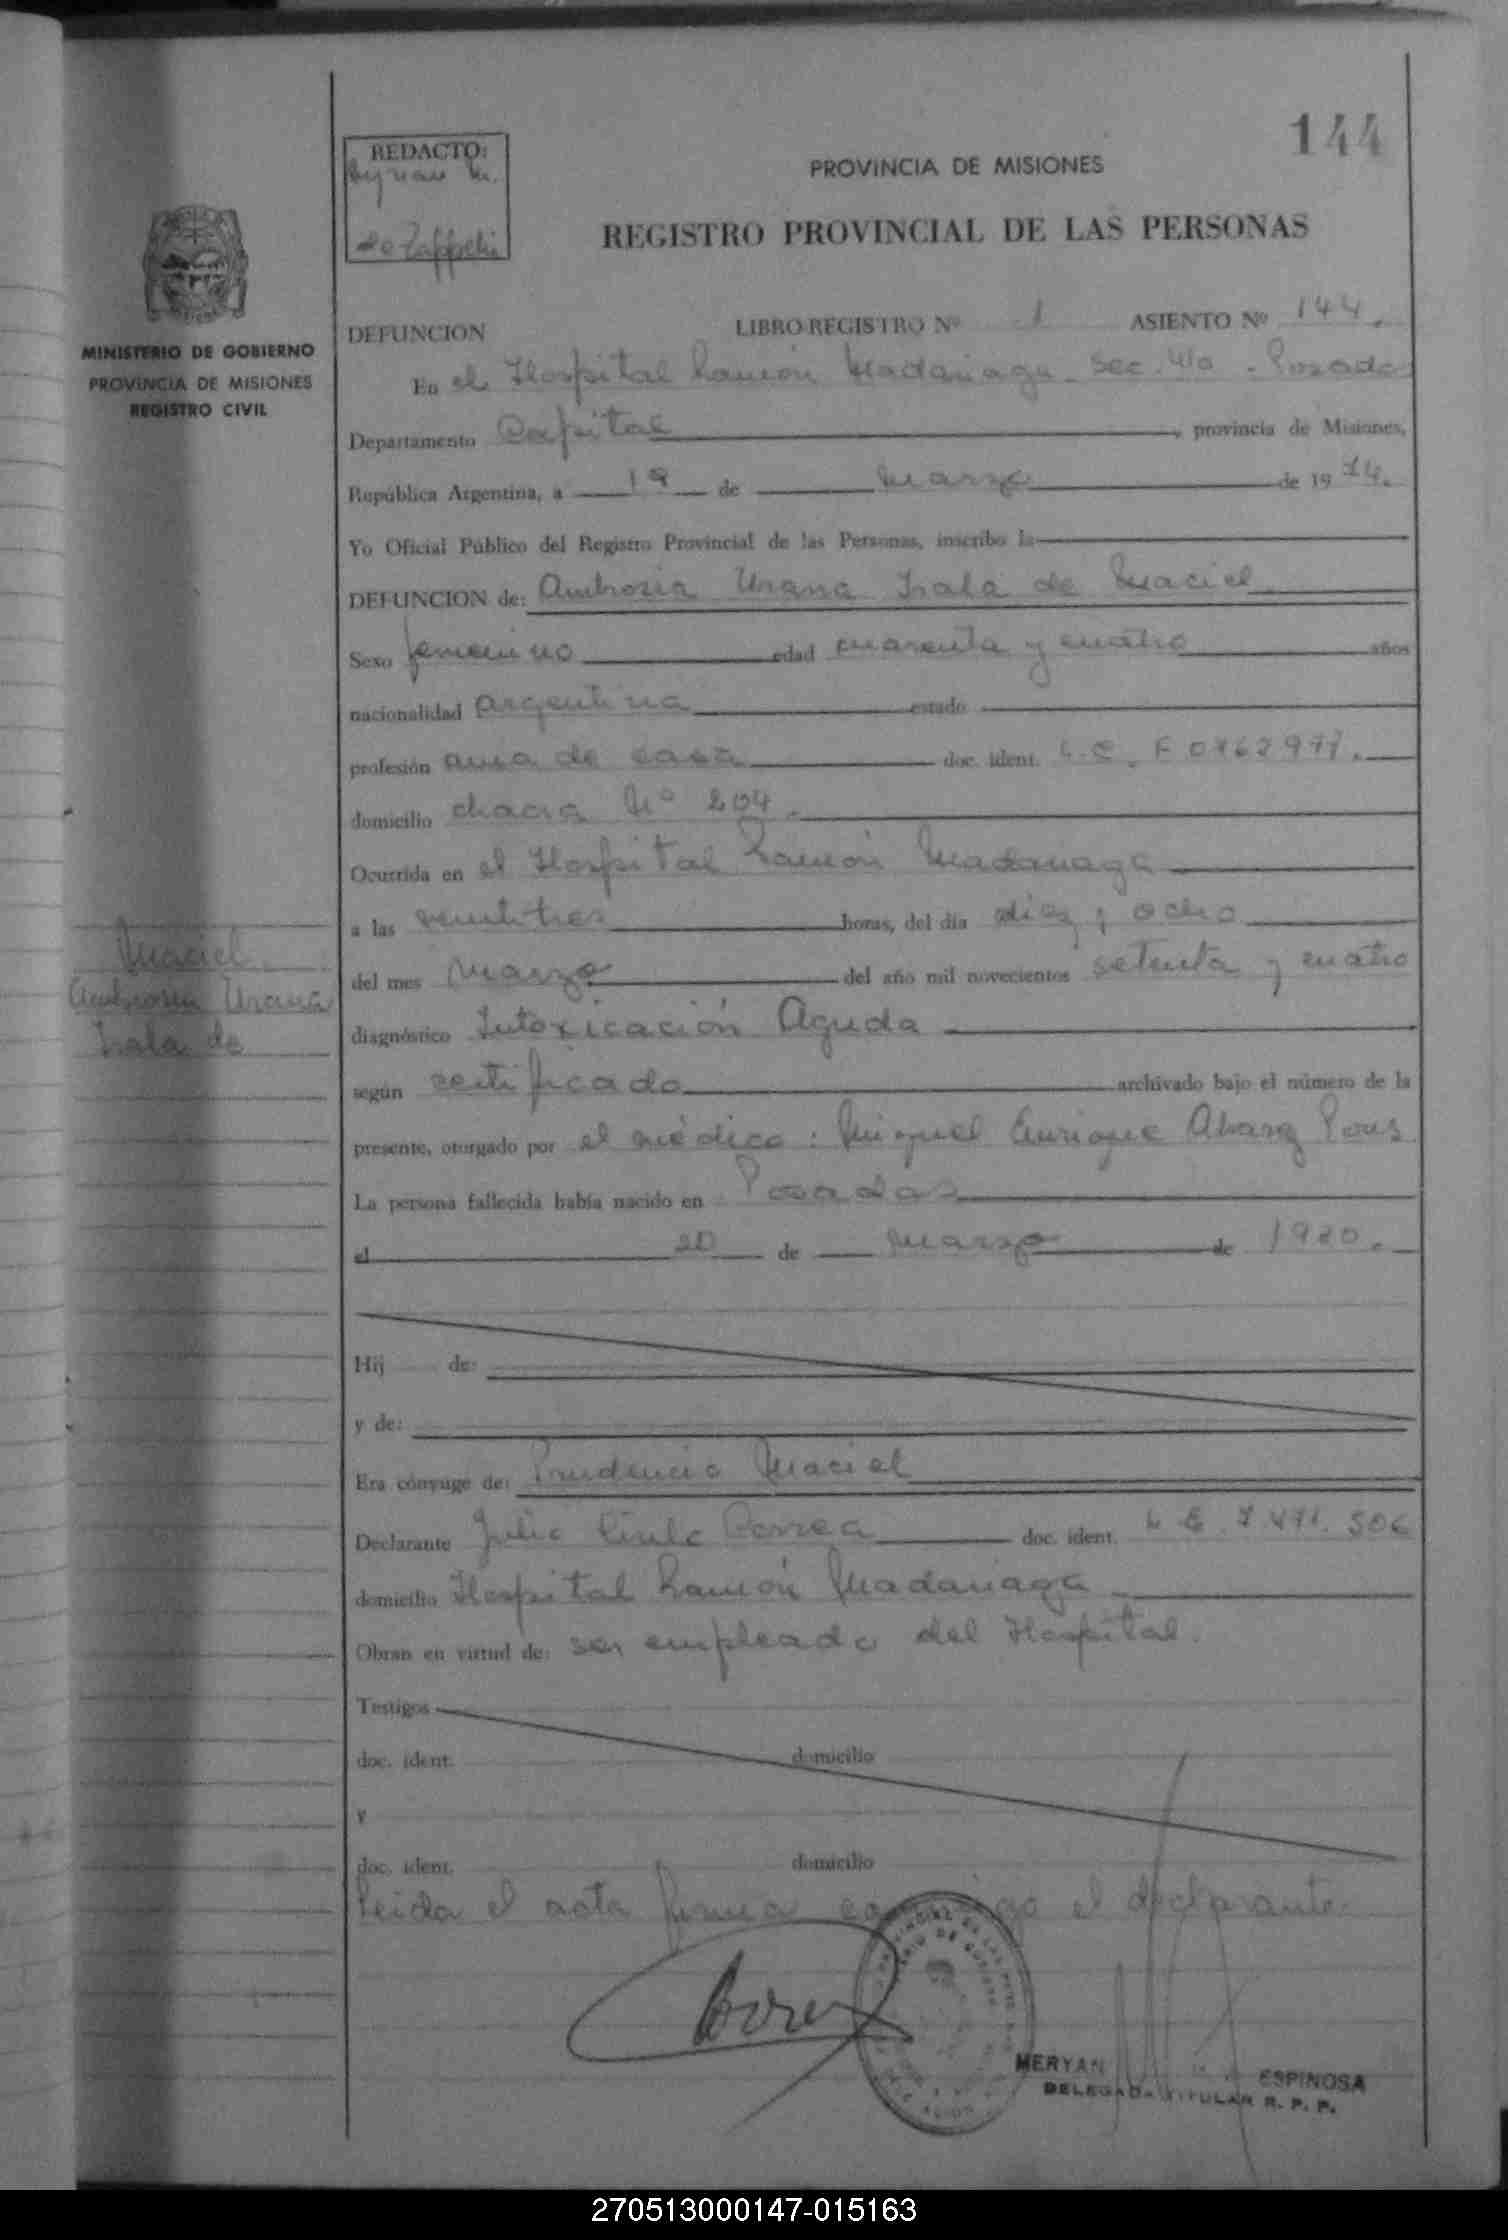 144
REDACTO:
PROVINCIA DE MISIONES
de Zappelli
REGISTRO PROVINCIAL DE LAS PERSONAS
MINISTERIO DE GOBIERNO
PROVINCIA DE MISIONES
REGISTRO CIVIL
DEFUNCION LIBRO REGISTRO Nº 1 ASIENTO Nº 144.
En el Hospital Ramón Madariaga - Sec. 4ta - Posadas
Departamento Capital, provincia de Misiones,
República Argentina, a 19 de marzo de 1974.
Yo Oficial Público del Registro Provincial de las Personas, inscribo la
DEFUNCION de: Ambrosia Urana Irala de Maciel
Sexo femenino edad cuarenta y cuatro años
nacionalidad argentina estado
profesión ama de casa doc. ident. L.C. F
domicilio chacra Nº 204.
Ocurrida en el Hospital Ramón Madariaga
a las veintitres horas, del día diez y ocho
del mes marzo del año mil novecientos setenta y cuatro
Maciel
Ambrosia Urana
Irala de
diagnóstico Intoxicación Aguda
según certificado archivado bajo el número de la
presente, otorgado por el médico: Miguel Enrique Alvarez Pons
La persona fallecida había nacido en Posadas
el 20 de marzo de 1930.
Hij de:
y de:
Era cónyuge de: Prudencio Maciel
Declarante Julio Correa doc. ident. L.E. 7.471.506
domicilio Hospital Ramón Madariaga
Obran en virtud de: ser empleado del Hospital.
Testigos
doc. ident. domicilio
y
doc. ident. domicilio
Leida el acta firma el declarante.
MERYAN ESPINOSA
DELEGADA TITULAR R. P. P.
270513000147-015163